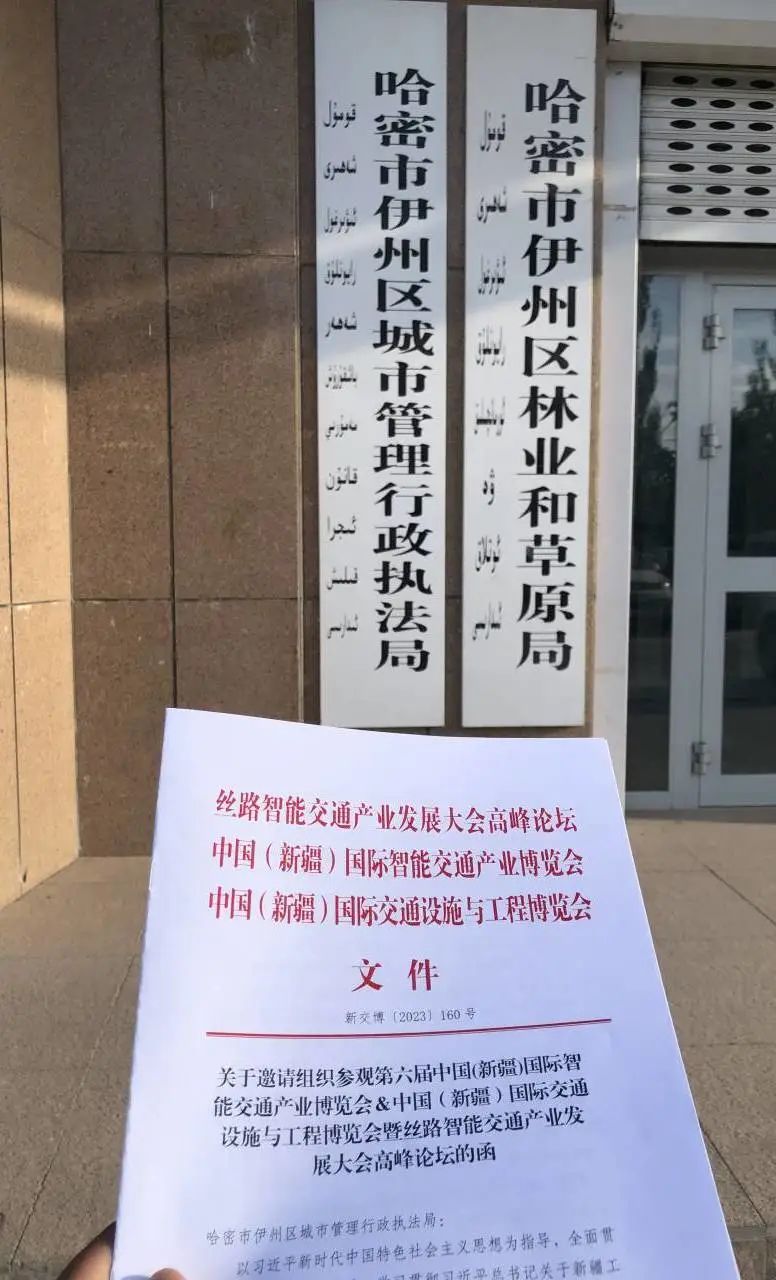 哈密市伊州区城市管理行政执法局
قومۇل
شەھىرى
ئىۋىرغول
رايونلۇق
شەھەر
باشقۇرۇش
مەمۇرىي
قانۇن
ئىجرا
قىلىش
ئىدارىسى
哈密市伊州区林业和草原局
قومۇل
شەھىرى
ئىۋىرغول
رايونلۇق
ئورمانچىلىق
ۋە
ئوتلاق
ئىدارىسى
丝路智能交通产业发展大会高峰论坛
中国（新疆）国际智能交通产业博览会
中国（新疆）国际交通设施与工程博览会
文件
新交博〔2023〕160号
关于邀请组织参观第六届中国(新疆)国际智
能交通产业博览会&中国（新疆）国际交通
设施与工程博览会暨丝路智能交通产业发
展大会高峰论坛的函
哈密市伊州区城市管理行政执法局：
以习近平新时代中国特色社会主义思想为指导，全面贯
学习贯彻习近平总书记关于新疆工